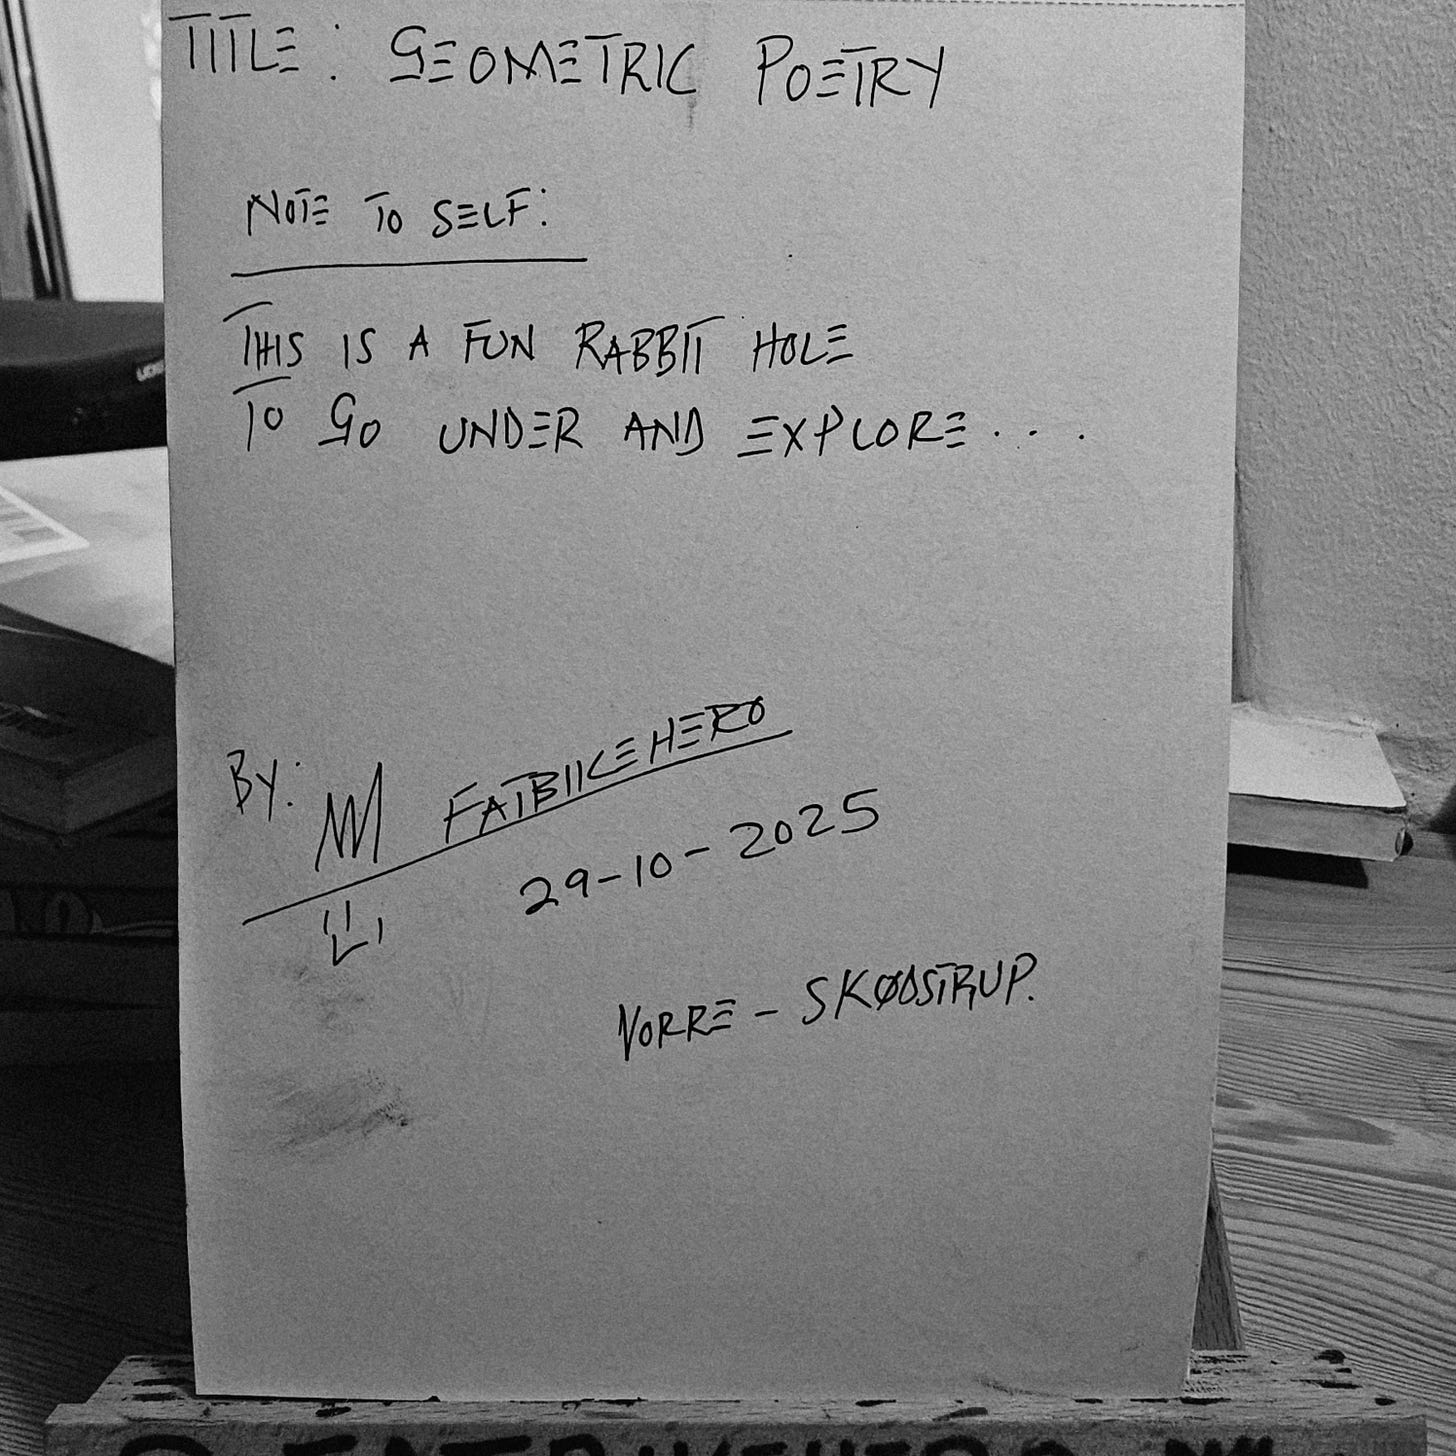 TITLE: GEOMETRIC POETRY
NOTE TO SELF:
THIS IS A FUN RABBIT HOLE
TO GO UNDER AND EXPLORE...
By: FATBIKEHERO
29-10-2025
VORRE - SKØDSTRUP.